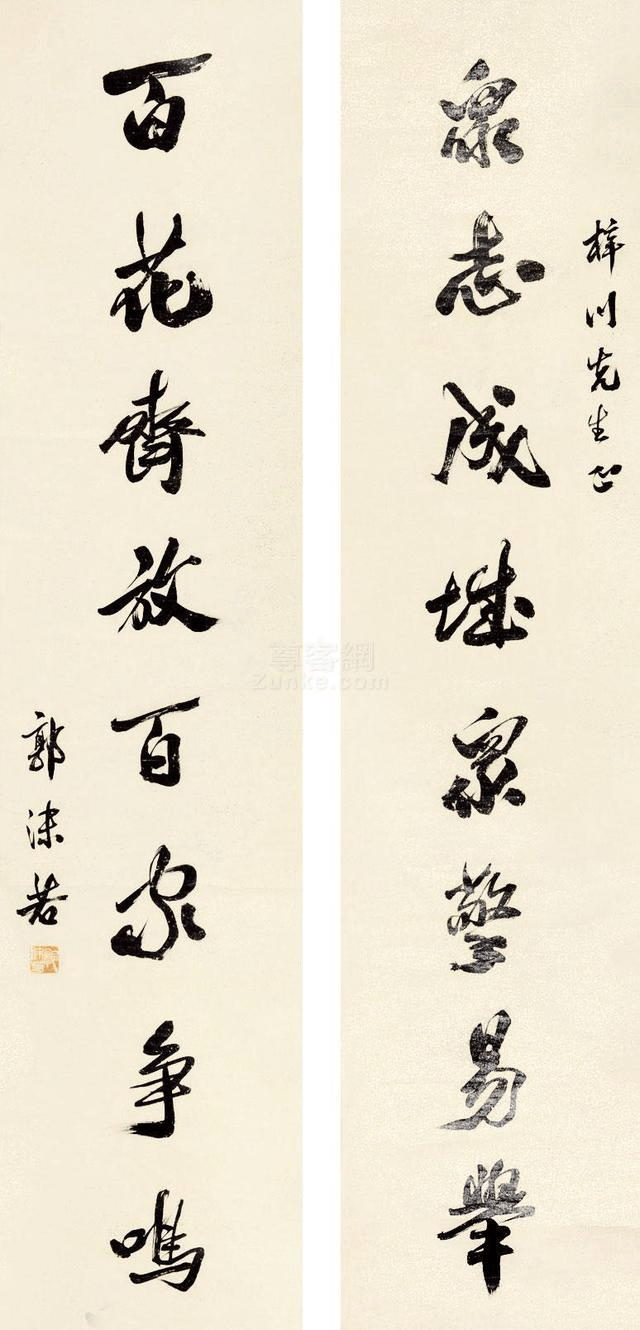 梓川先生正
衆志成城衆擎易舉
百花齊放百家争鳴
郭沫若
尊客網
Zunke.com